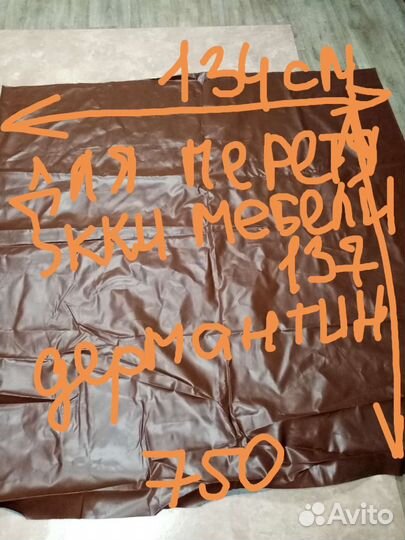 134см
для перетя
жки мебели
137
дермантин
750
Avito